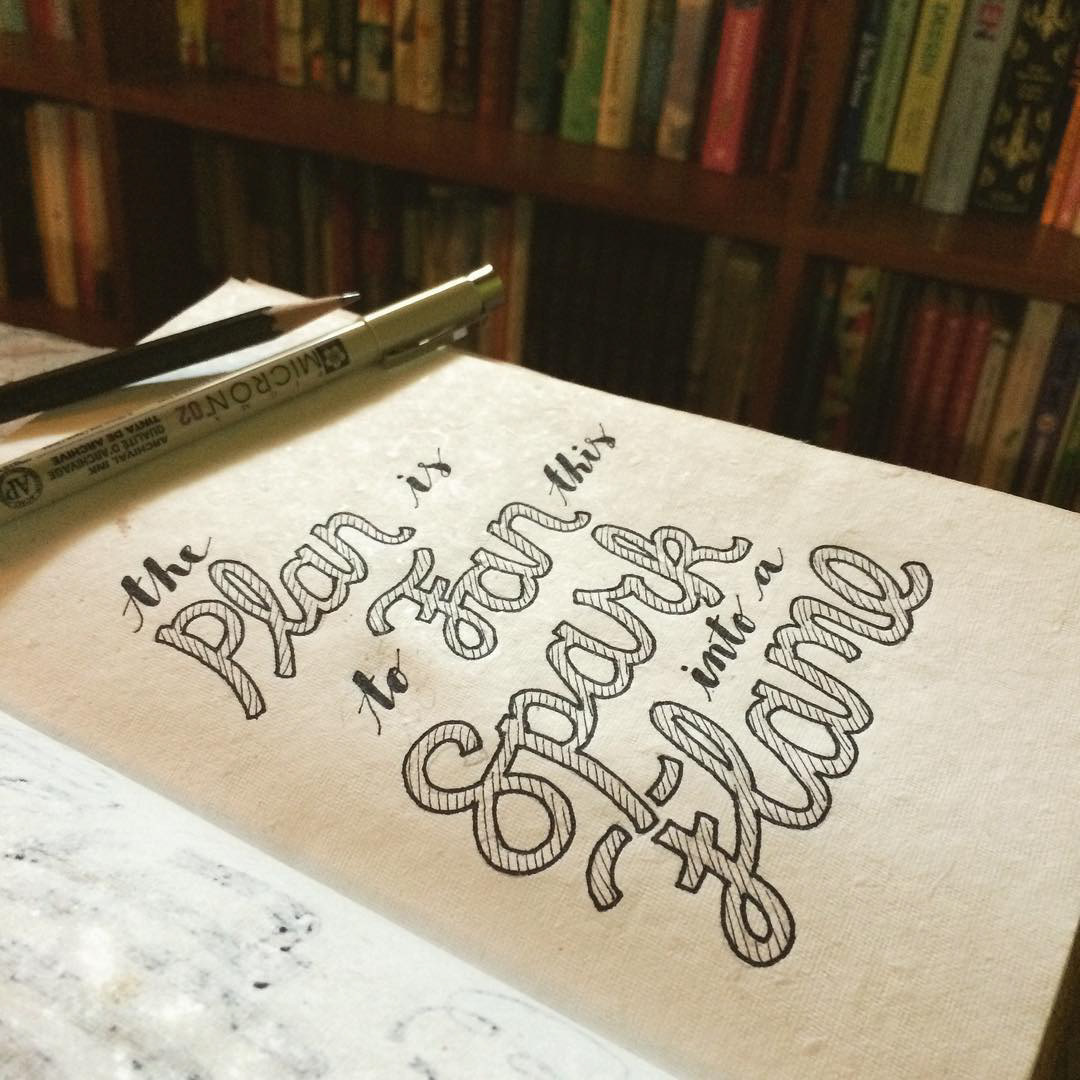 the Plan is
to Fan this
Spark into a
Flame
MICRON 02
ARCHIVAL INK
QUALITÉ D'ARCHIVAGE
TINTA DE ARCHIVE
AP